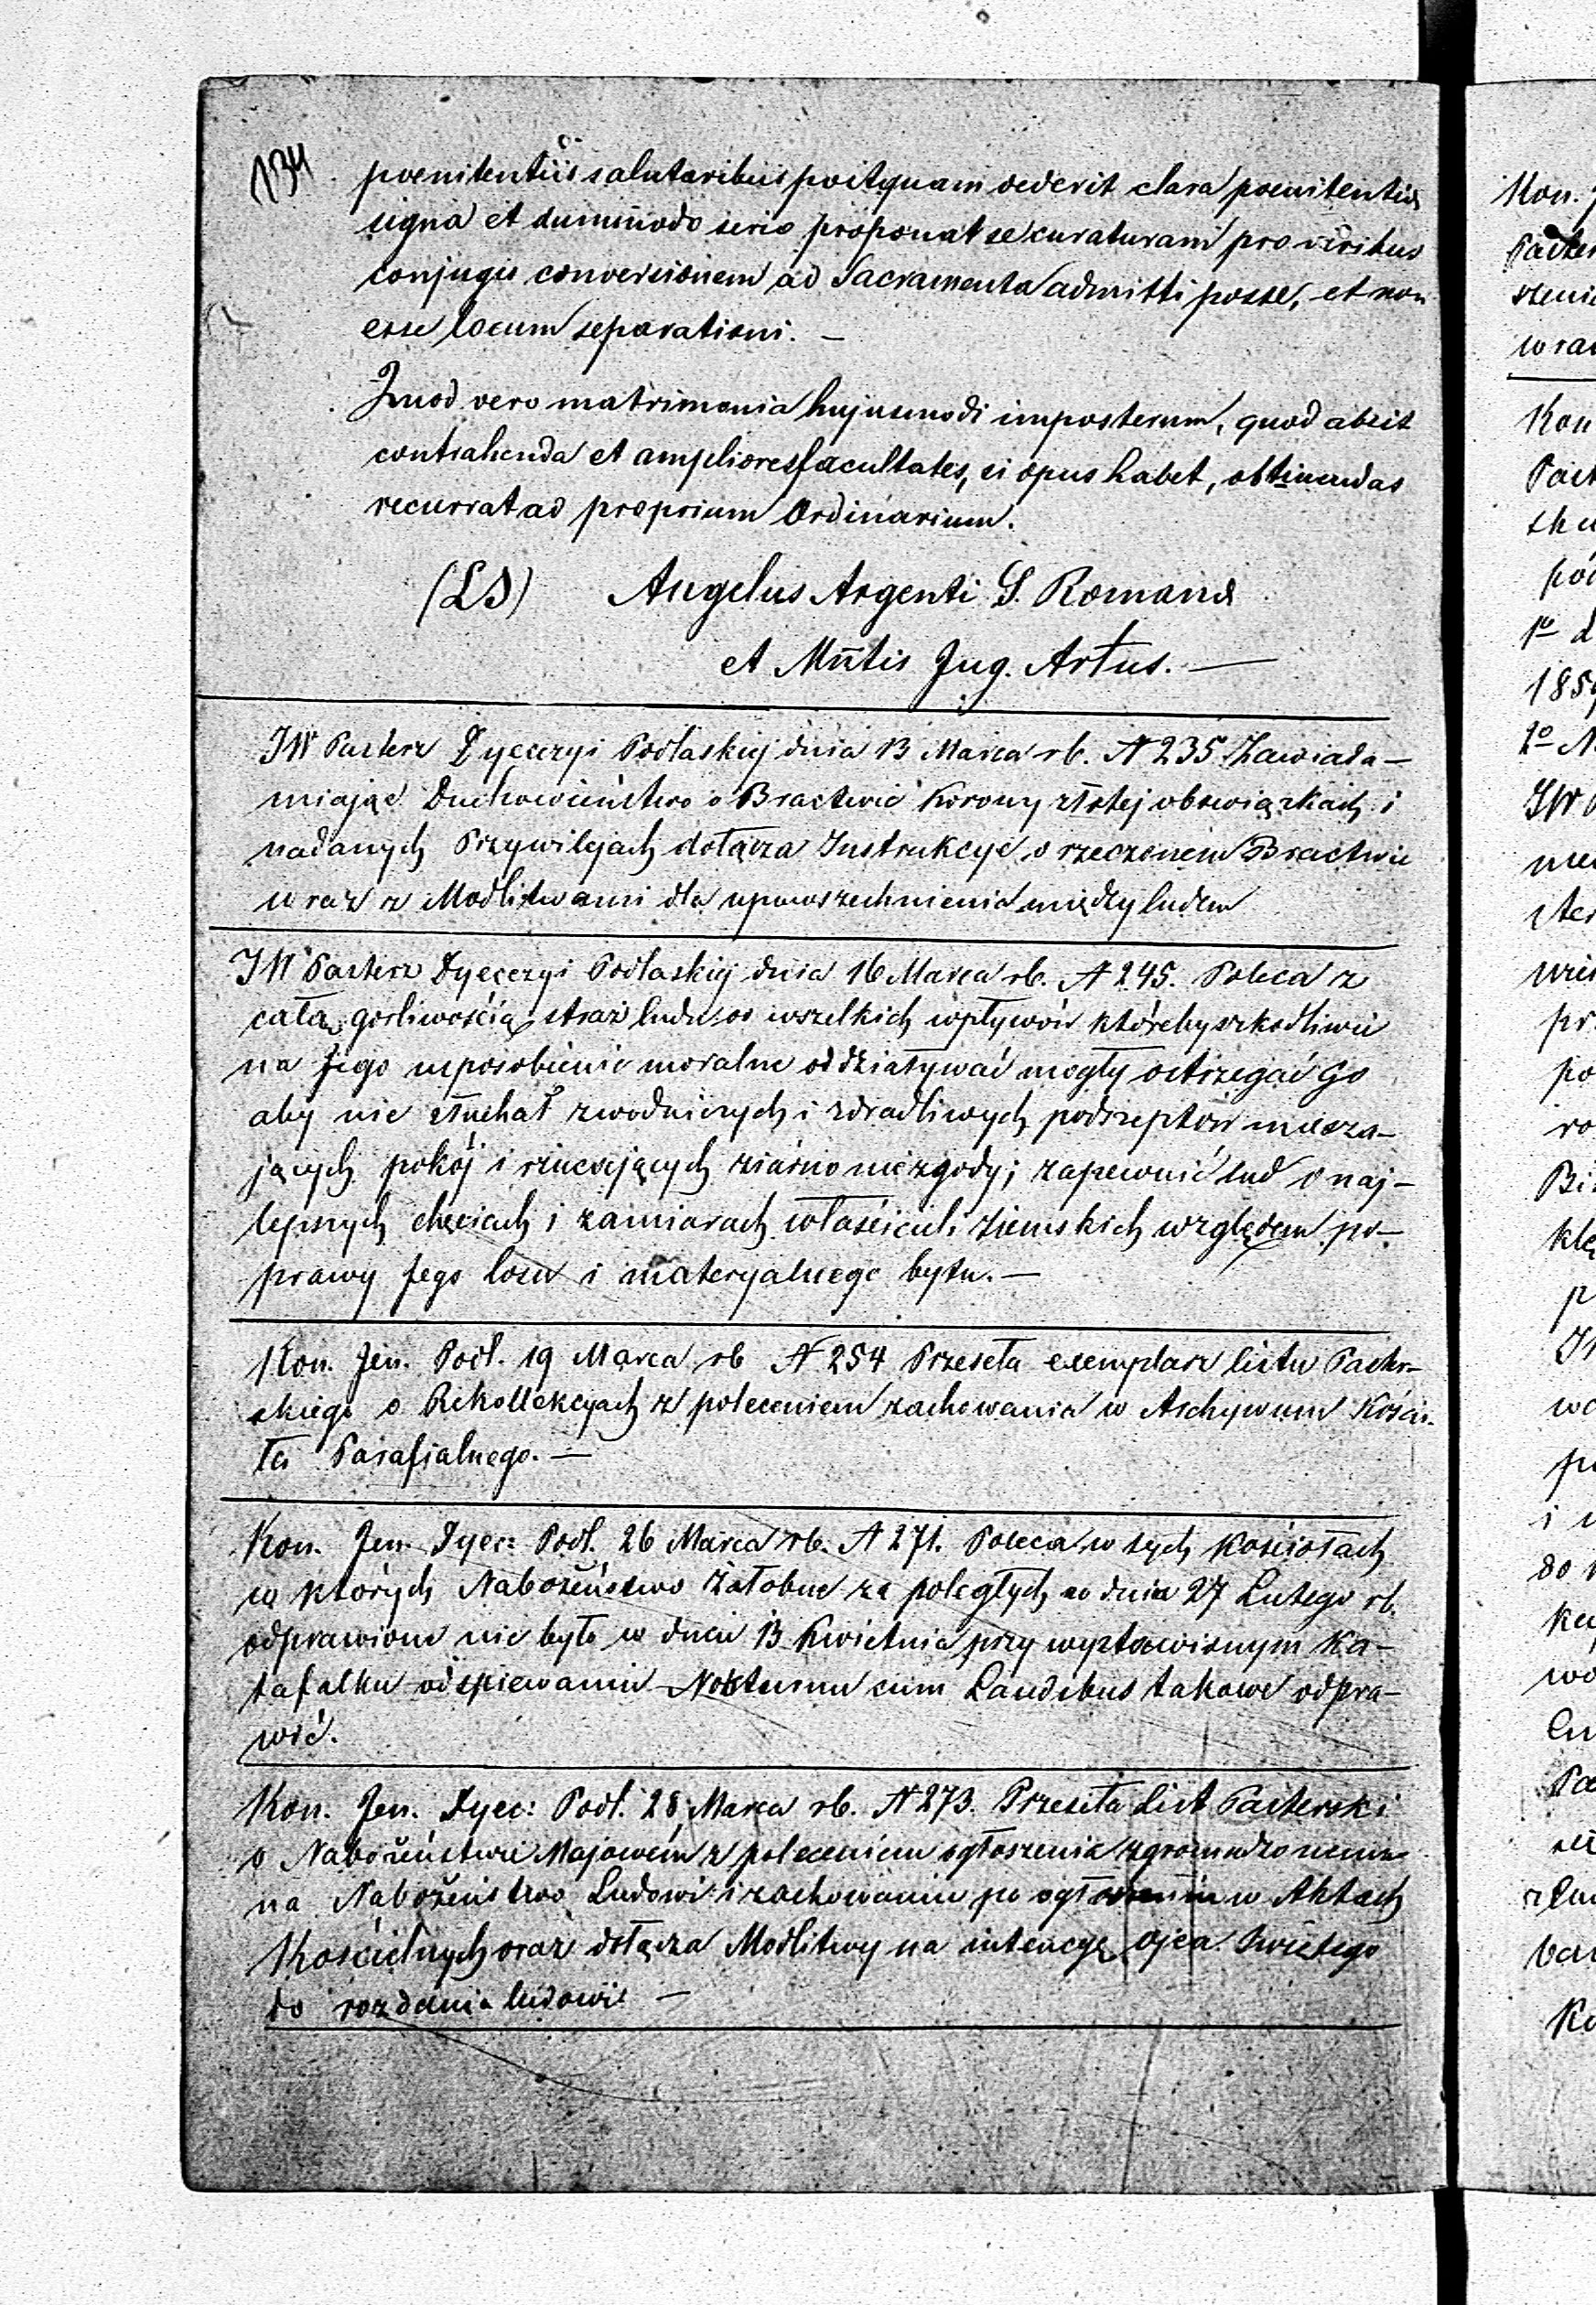 134
poenitentiis salutaribus postquam dederit clara poenitentia
signa et dummodo serio proponat se curaturam pro viribus
conjugis conversionem ad Sacramenta admitti posse, et non
esse locum separationi. —
Quod vero matrimonia hujusmodi imposterum, quod absit
contrahenda et ampliores facultates, si opus habet, obtinendas
recurrat ad proprium Ordinarium.
(LS) Angelus Argenti S. Romana
et Mñtis Jng. Artus. —
JW Pasterz Dyecezyi Podlaskiej dnia 13 Marca rb. N 235 Zawiada—
miając Duchowieństwo o Bractwie Korony złotej obowiązkach i
nadanych Przywilejach dołącza Instrukcye o rzeczonem Bractwie
wraz z Modlitwami dla upowszechnienia między ludem
JW Pasterz Dyecezyi Podlaskiej dnia 16 Marca rb. N 245. Poleca z
całą gorliwością straż ludu od wszelkich wpływów któreby szkodliwie
na Jego usposobienie moralne oddziaływać mogły ostrzegać Go
aby nie słuchał zwodniczych i zdradliwych podszeptów miesza—
jących pokój i rzucających ziarno niezgody; zapewnić lud o naj—
lepszych chęciach i zamiarach właścicieli ziemskich względem po—
prawy Jego losu i materyalnego bytu. —
Kon. Jen. Podl. 19 Marca rb N 254 Przeseła exemplarz listu Paster—
skiego o Rekollekcyach z poleceniem zachowania w Archywum Kościo.
ła Parafialnego. —
Kon. Jen. Dyec: Podl. 26 Marca rb. N 271. Poleca w tych Kościołach
w których Nabożeństwo żałobne za poległych w dniu 27 Lutego rb.
odprawione nie było w dniu 13 Kwietnia przy wystawionym Ka—
tafalku odśpiewaniu Nokturnu cum Laudibus takowe odpra—
wić.
Kon. Jen. Dyec: Podl. 28 Marca rb. N 273. Przeseła List Pasterski
o Nabożeństwie Majowém z poleceniem ogłoszenia zgromadzonemu
na Nabożeństwo Ludowi i zachowaniu po ogłoszeniu w Aktach
Kościelnych oraz dołącza Modlitwy na intencyę Ojca Świętego
do rozdania ludowi —